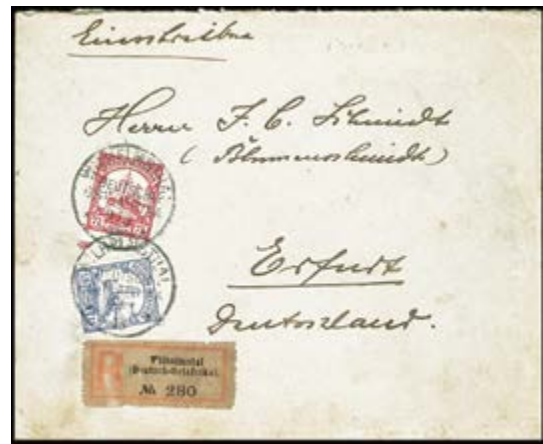 Einschreiben
Herrn J. C. Schmidt
(Blumenschmidt)
Erfurt
Deutschland.
R
Wilhelmstal
(Deutsch-Ostafrika).
№ 280